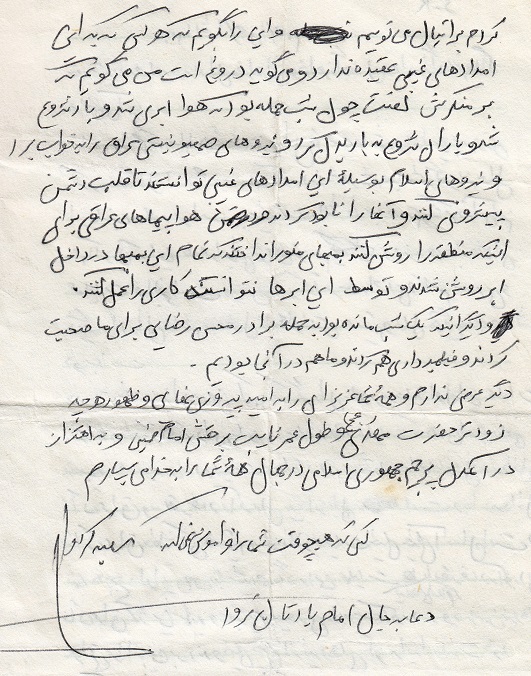 کردم برایتان می نویسم و این را بگویم که هر کس که به این
امدادهای غیبی عقیده ندارد و می گوید دروغ است من می گویم که
بر منکرش لعنت چون شب حمله بود که هوا ابری شد و باد شروع
شد و باران شروع به باریدن کرد و نیروهای صهیونیستی عراق را به خواب برد
و نیروهای اسلام بوسیلهٔ این امدادهای غیبی توانستند تا قلب دشمن
پیشروی کنند و آنها را نابود کردند هواپیماهای عراقی برای
اینکه منطقه را روشن کنند بمبهای منور انداختند که تمام این بمبها در داخل
ابر روشن شدند و توسط این ابرها نتوانستند کاری را عمل کنند.
و دیگر اینکه یک شب مانده بود به حمله برادر محسن رضایی برای ما صحبت
کردند و فیلمبرداری هم کردند و ما هم در آنجا بودیم.
دیگر عرضی ندارم و همهٔ شما عزیزان را به امید پیروزی نهایی و ظهور هر چه
زودتر حضرت مهدی (عج) و طول عمر نایب بر حقش امام خمینی و به اهتزاز
در آمدن پرچم جمهوری اسلامی در جهان همهٔ شما را به خدا می سپارم
کسی که هیچوقت شما را فراموش نمی کند سعید
دعا به جان امام یادتان نرود